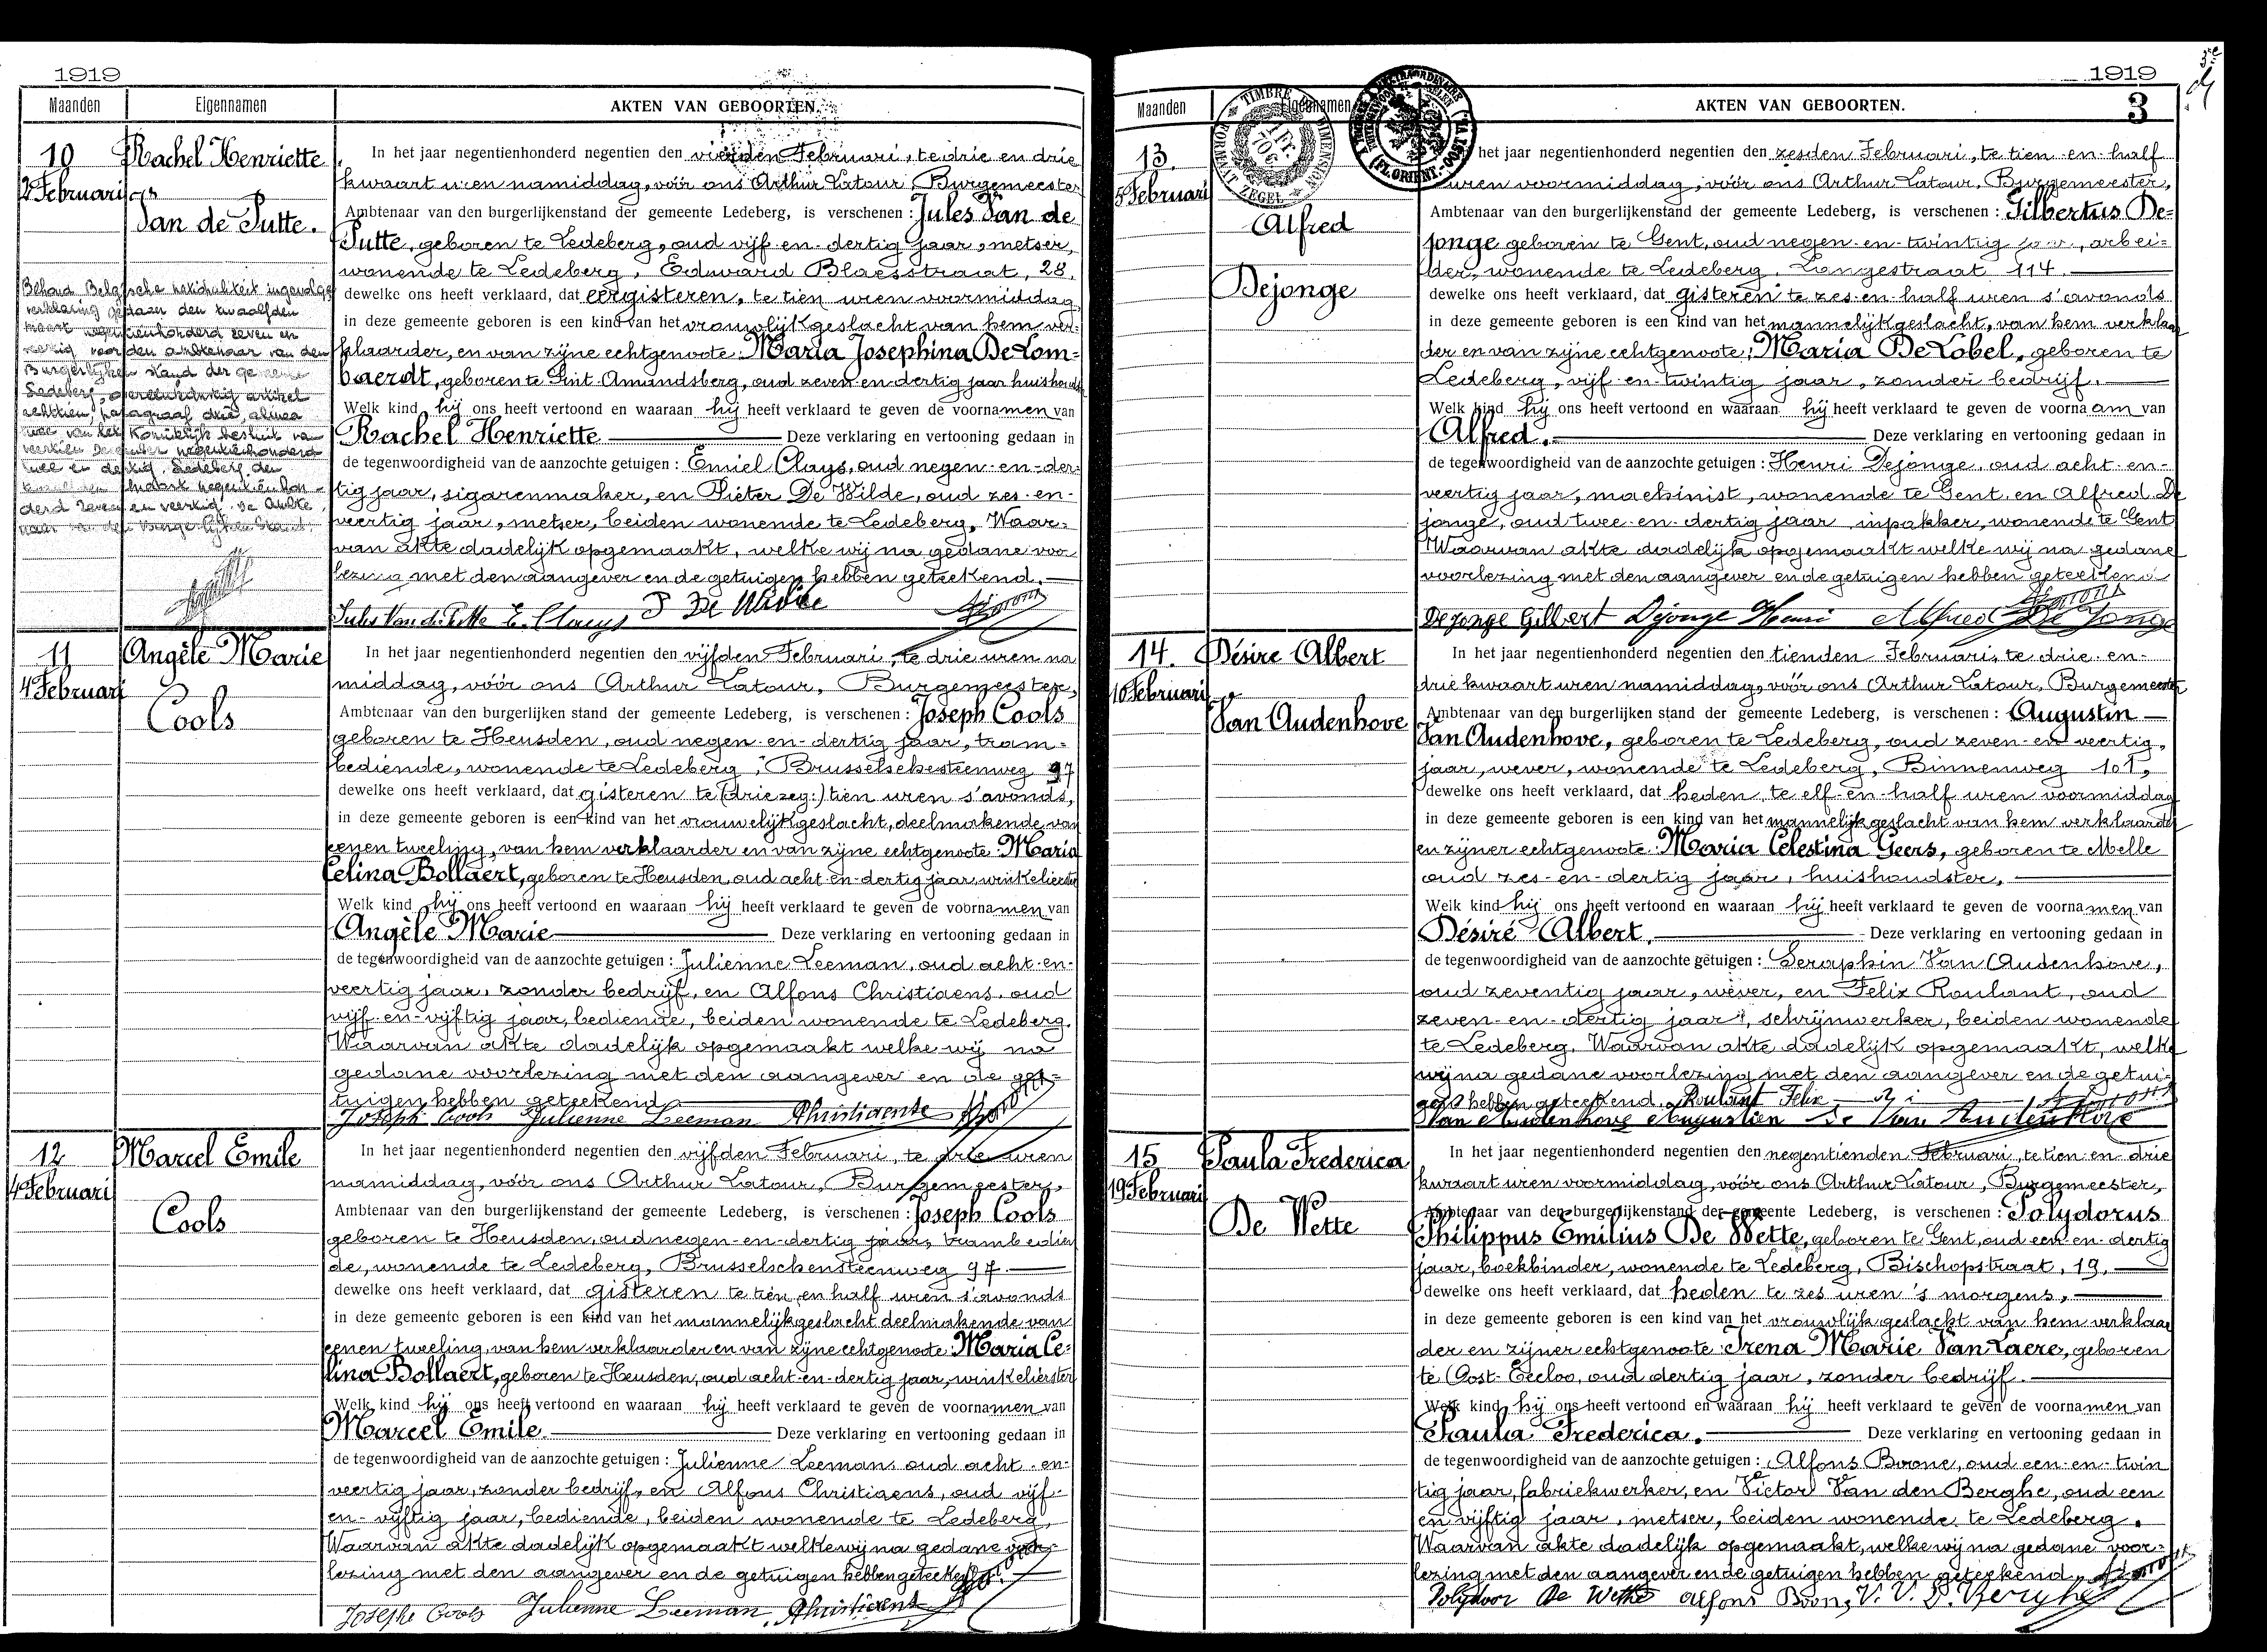 1919
Maanden Eigennamen AKTEN VAN GEBOORTEN.
10
2 Februari
Rachel Henriette
Van de Putte.
Behoud Belgische nationaliteit ingevolge
verklaring gedaan den twaalfden
maart negentienhonderd zeven en
veertig voor den ambtenaar van den
Burgerlijken stand der gemeente
Ledeberg, overeenkomstig artikel
achttien, paragraaf drie, alinea
twee van het Koninklijk besluit van
veertien December negentienhonderd
twee en dertig. Ledeberg, den
twaalfden Maart negentienhon-
derd zeven en veertig. De Ambte-
naar van den Burgerlijken Stand.
In het jaar negentienhonderd negentien den vierden Februari, te drie en drie
kwaart uren namiddag, vóór ons Arthur Latour, Burgemeester
Ambtenaar van den burgerlijkenstand der gemeente Ledeberg, is verschenen: Jules Van de
Putte, geboren te Ledeberg, oud vijf-en-dertig jaar, metser,
wonende te Ledeberg, Edward Blaesstraat, 28,
dewelke ons heeft verklaard, dat eergisteren, te tien uren voormiddag
in deze gemeente geboren is een kind van het vrouwlijkgeslacht van hem ver-
klaarder, en van zijne echtgenoote: Maria Josephina De Lom=
baerdt, geboren te Sint-Amandsberg, oud zeven-en-dertig jaar huishoudst
Welk kind hij ons heeft vertoond en waaraan hij heeft verklaard te geven de voornamen van
Rachel Henriette Deze verklaring en vertooning gedaan in
de tegenwoordigheid van de aanzochte getuigen: Emiel Clays, oud negen-en-der-
tig jaar, sigarenmaker, en Pieter De Wilde, oud zes-en-
veertig jaar, metser, beiden wonende te Ledeberg. Waar-
van akte dadelijk opgemaakt, welke wij na gedane voor
lezing met den aangever en de getuigen hebben geteekend.
Jules Van de Putte E. Clays P De Wilde
11
4 Februari
Angèle Marie
Cools
In het jaar negentienhonderd negentien den vijfden Februari, te drie uren na
middag, vóór ons Arthur Latour, Burgemeester,
Ambtenaar van den burgerlijken stand der gemeente Ledeberg, is verschenen: Joseph Cools
geboren te Heusden, oud negen-en-dertig jaar, tram-
bediende, wonende te Ledeberg, Brusselschesteenweg 97
dewelke ons heeft verklaard, dat gisteren te (drie zeg:) tien uren s'avonds,
in deze gemeente geboren is een kind van het vrouwelijkgeslacht, deelmakende van
eenen tweeling, van hem verklaarder en van zijne echtgenoote: Maria
Celina Bollaert, geboren te Heusden, oud acht-en-dertig jaar, winkelierster
Welk kind hij ons heeft vertoond en waaraan hij heeft verklaard te geven de voornamen van
Angèle Marie Deze verklaring en vertooning gedaan in
de tegenwoordigheid van de aanzochte getuigen: Julienne Leeman, oud acht-en-
veertig jaar, zonder bedrijf, en Alfons Christiaens, oud
vijf-en-vijftig jaar, bediende, beiden wonende te Ledeberg.
Waarvan akte dadelijk opgemaakt welke wij na
gedane voorlezing met den aangever en de get-
tuigen hebben geteekend.
Joseph Cools Julienne Leeman AChristiaens
12
4 Februari
Marcel Emile
Cools
In het jaar negentienhonderd negentien den vijfden Februari, te drie uren
namiddag, vóór ons Arthur Latour, Burgemeester,
Ambtenaar van den burgerlijkenstand der gemeente Ledeberg, is verschenen: Joseph Cools
geboren te Heusden, oud negen-en-dertig jaar, trambedien
de, wonende te Ledeberg, Brusselschensteenweg 97.
dewelke ons heeft verklaard, dat gisteren te tien en half uren s'avonds
in deze gemeente geboren is een kind van het mannelijkgeslacht deelmakende van
eenen tweeling, van hem verklaarder en van zijne echtgenoote: Maria Ce-
lina Bollaert, geboren te Heusden, oud acht-en-dertig jaar, winkelierster
Welk kind hij ons heeft vertoond en waaraan hij heeft verklaard te geven de voornamen van
Marcel Emile. Deze verklaring en vertooning gedaan in
de tegenwoordigheid van de aanzochte getuigen: Julienne Leemans oud acht-en-
veertig jaar, zonder bedrijf, en Alfons Christiaens, oud vijf-
en-vijftig jaar, bediende, beiden wonende te Ledeberg,
Waarvan akte dadelijk opgemaakt welke wij na gedane voor-
lezing met den aangever en de getuigen hebben geteekend.
Josephe Cools Julienne Leeman AChristiaens
1919
3
Maanden Eigennamen AKTEN VAN GEBOORTEN.
TIMBRE DIMENSION
1 Fr. 70 C.
FORMAAT ZEGEL
(FL. ORIENT.)
13.
5 Februari
Alfred
Dejonge
het jaar negentienhonderd negentien den zesden Februari, te tien-en-half
uren voormiddag, vóór ons Arthur Latour, Burgemeester,
Ambtenaar van den burgerlijkenstand der gemeente Ledeberg, is verschenen: Gilbertus De=
jonge geboren te Gent, oud negen-en-twintig jaar, arbei=
der, wonende te Ledeberg, Langestraat 114.
dewelke ons heeft verklaard, dat gisteren te zes-en-half uren s'avonds
in deze gemeente geboren is een kind van het mannelijkgeslacht, van hem verklaar
der en van zijne echtgenoote: Maria De Lobel, geboren te
Ledeberg, vijf-en-twintig jaar, zonder bedrijf.
Welk kind hij ons heeft vertoond en waaraan hij heeft verklaard te geven de voornaam van
Alfred. Deze verklaring en vertooning gedaan in
de tegenwoordigheid van de aanzochte getuigen: Henri Dejonge, oud acht-en-
veertig jaar, machinist, wonende te Gent, en Alfred De
jonge, oud twee-en-dertig jaar inpakker, wonende te Gent
Waarvan akte dadelijk opgemaakt welke wij na gedane
voorlezing met den aangever en de getuigen hebben geteekend
Dejonge Gilbert Dejonge Henri Alfred De Jonge
14.
10 Februari
Désire Albert
Van Audenhove
In het jaar negentienhonderd negentien den tienden Februari, te drie-en-
drie kwaart uren namiddag, vóór ons Arthur Latour, Burgemeester
Ambtenaar van den burgerlijken stand der gemeente Ledeberg, is verschenen: Augustin
Van Audenhove, geboren te Ledeberg, oud zeven-en veertig,
jaar, wever, wonende te Ledeberg, Binnenweg 101,
dewelke ons heeft verklaard, dat heden, te elf-en-half uren voormiddag
in deze gemeente geboren is een kind van het mannelijkgeslacht van hem verklaarder
en zijner echtgenoote: Maria Celestina Geers, geboren te Melle
oud zes-en-dertig jaar, huishoudster,
Welk kind hij ons heeft vertoond en waaraan hij heeft verklaard te geven de voornamen van
Désiré Albert. Deze verklaring en vertooning gedaan in
de tegenwoordigheid van de aanzochte getuigen: Seraphin Van Audenhove,
oud zeventig jaar, wever, en Felix Roulant, oud
zeven-en-dertig jaar, schrijnwerker, beiden wonende
te Ledeberg. Waarvan akte dadelijk opgemaakt, welke
wij na gedane voorlezing met den aangever en de getui-
gen hebben geteekend. Roulant Felix
Van Audenhove Augustien Se Van Audenhove
15
19 Februari
Paula Frederica
De Wette
In het jaar negentienhonderd negentien den negentienden Februari, te tien-en-drie
kwaart uren voormiddag, vóór ons Arthur Latour, Burgemeester,
Ambtenaar van den burgerlijkenstand der gemeente Ledeberg, is verschenen: Polydorus
Philippus Emilius De Wette, geboren te Gent, oud een-en-dertig
jaar, boekbinder, wonende te Ledeberg, Bischopstraat, 19,
dewelke ons heeft verklaard, dat heden te zes uren 's morgens,
in deze gemeente geboren is een kind van het vrouwlijkgeslacht van hem verklaar
der en zijner echtgenoote: Irena Marie Van Laere, geboren
te Oost-Eecloo, oud dertig jaar, zonder bedrijf.
Welk kind hij ons heeft vertoond en waaraan hij heeft verklaard te geven de voornamen van
Paula Frederica. Deze verklaring en vertooning gedaan in
de tegenwoordigheid van de aanzochte getuigen: Alfons Boone, oud een-en-twin
tig jaar, fabriekwerker, en Victor Van den Berghe, oud een
en vijftig jaar, metser, beiden wonende te Ledeberg.
Waarvan akte dadelijk opgemaakt, welke wij na gedane voor-
lezing met den aangever en de getuigen hebben geteekend.
Polydoor De Wette Alfons Boone V. V. D. Berghe